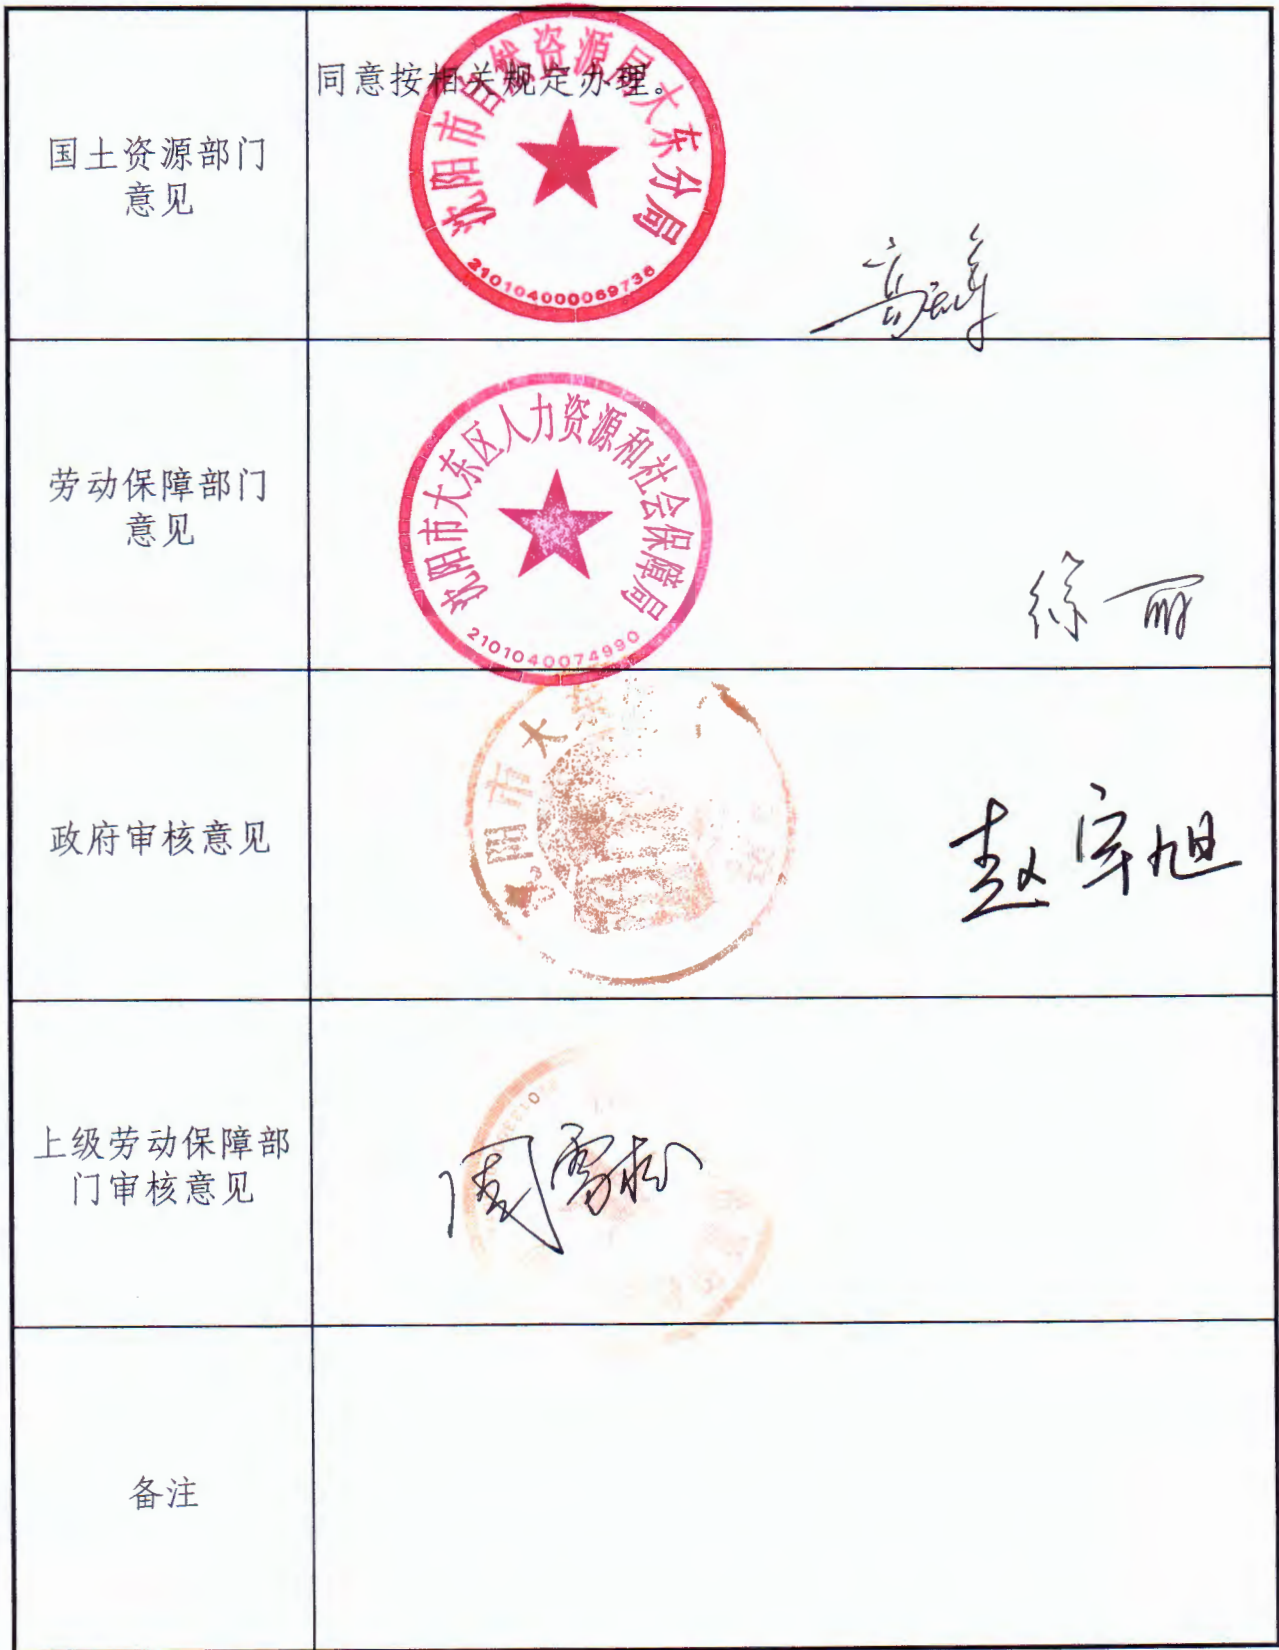 国土资源部门
意见
同意按相关规定办理。
沈阳市自然资源局大东分局
210104000069736
劳动保障部门
意见
沈阳市大东区人力资源和社会保障局
2101040074990
徐丽
政府审核意见
阳市大东
赵宇旭
上级劳动保障部
门审核意见
周雪松
备注